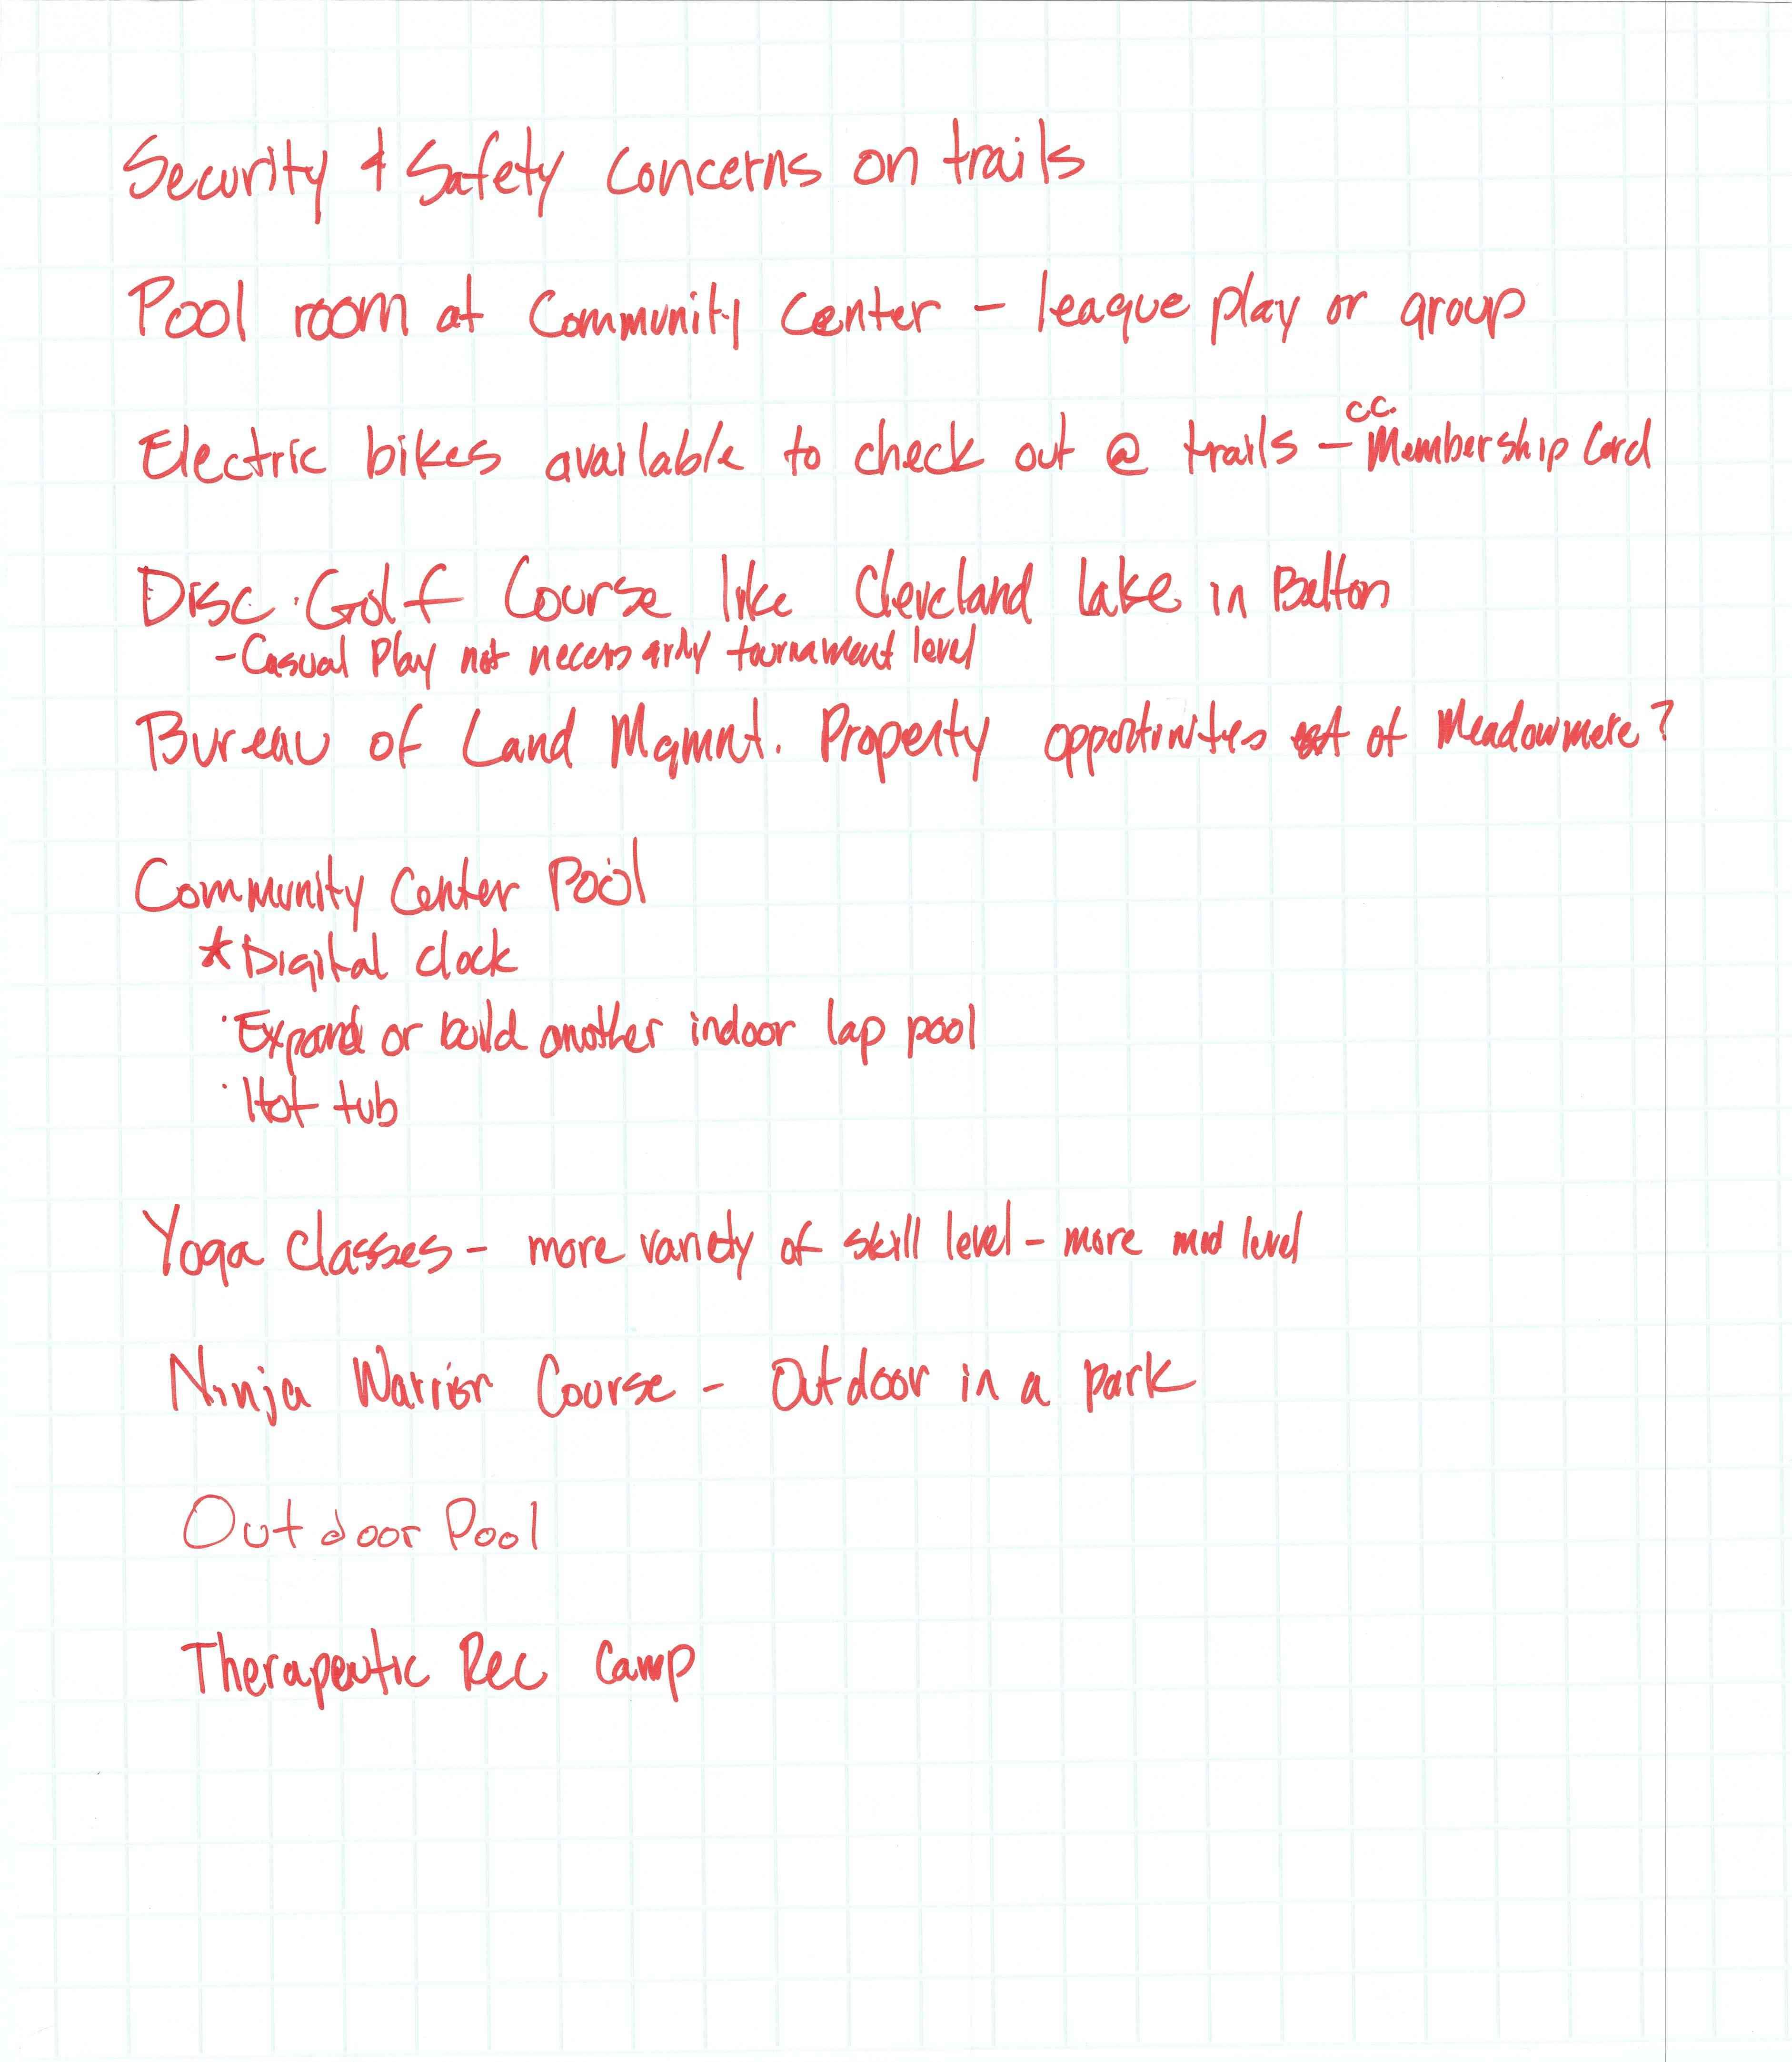 Security & Safety Concerns on trails
Pool room at Community Center - league play or group
Electric bikes available to check out @ trails - c.c. Membership Card
Disc Golf Course like Cleveland Lake in Belton
- Casual Play not necessarily tournament level
Bureau of Land Mgmnt. Property opportunities of Meadowmere?
Community Center Pool
* Digital clock
· Expand or build another indoor lap pool
· Hot tub
Yoga Classes - more variety of skill level - more mid level
Ninja Warrior Course - Outdoor in a park
Outdoor Pool
Therapeutic Rec Camp